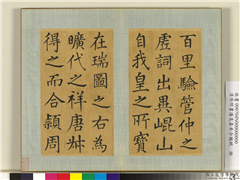 百里驗管仲之
虛詞出異崐山
自我皇之所寶
在瑞圖之右為
曠代之祥唐叔
得之而合頴周